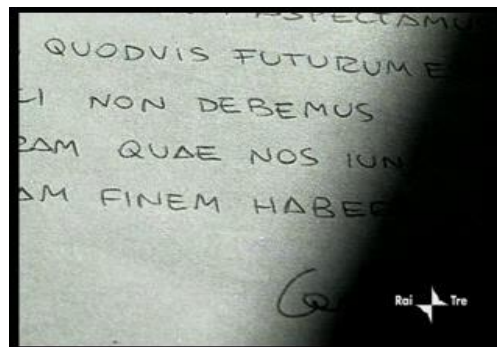 ASPECTAMUS
QUODVIS FUTURUM E
LI NON DEBEMUS
RAM QUAE NOS IUN
AM FINEM HABEE
Rai Tre